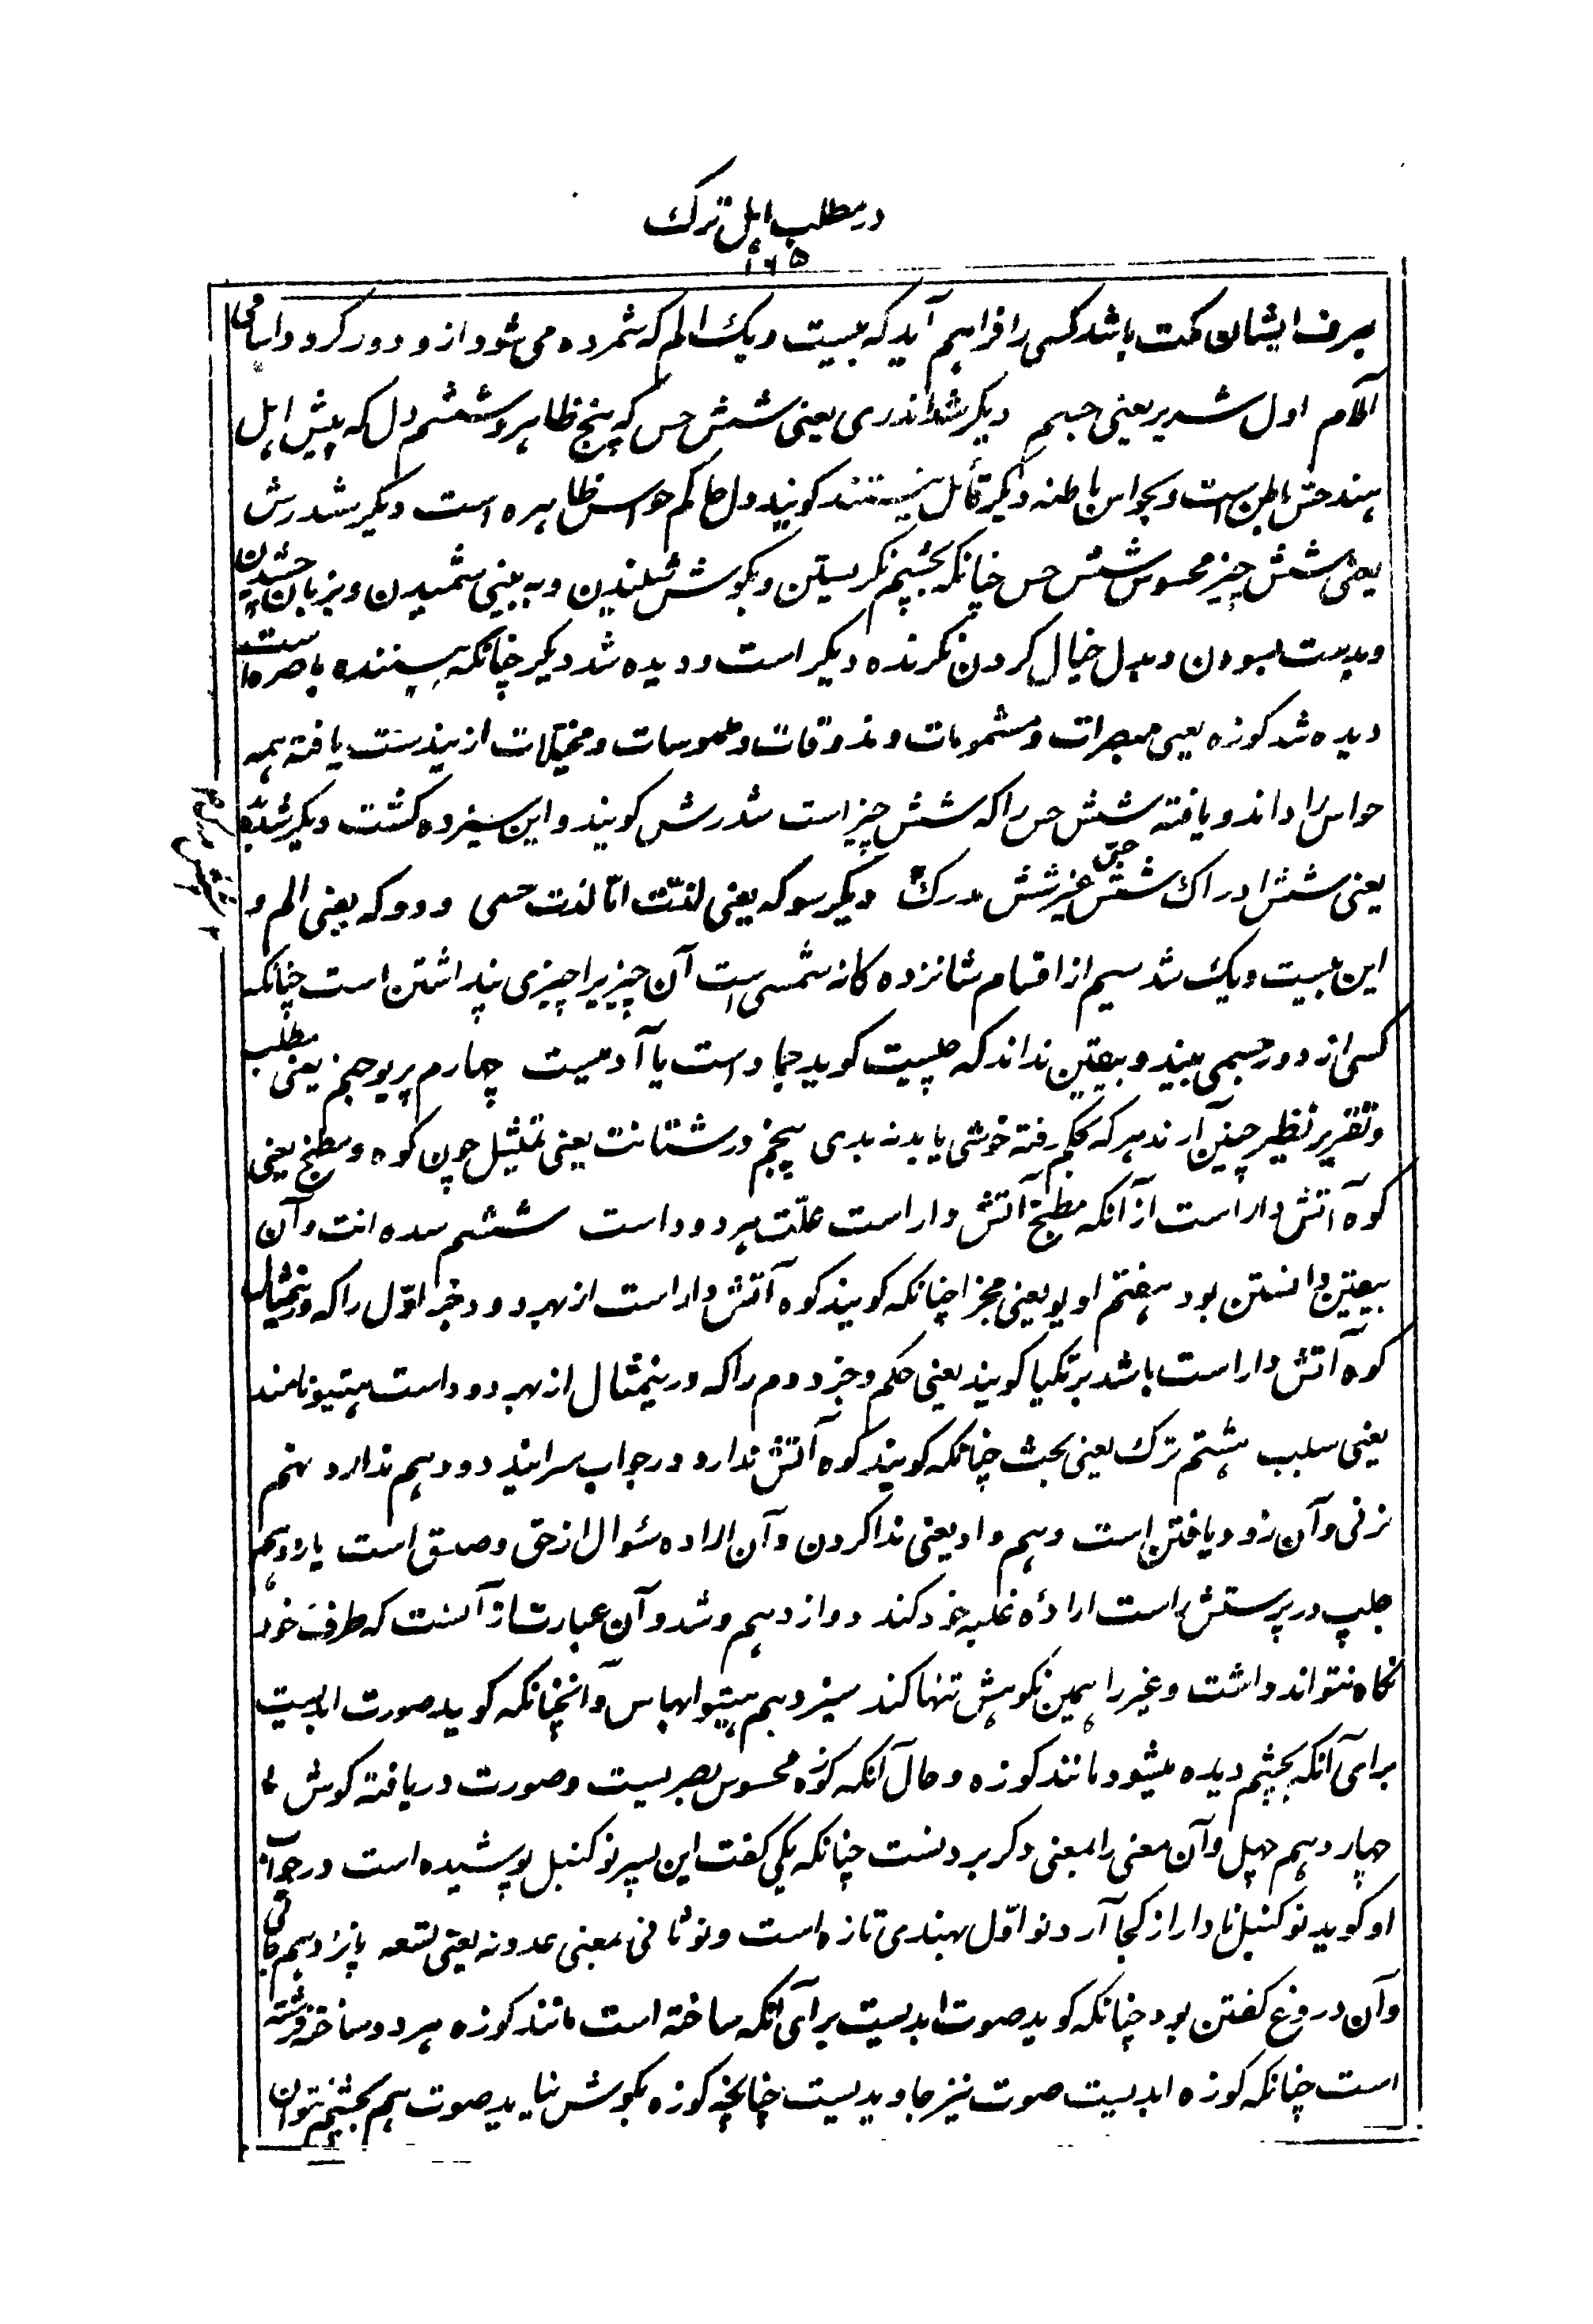 در مطلب اہل ترک
۱۶۵
بعرف ایشان مکت باشد کسی را فراہم آید کہ بیست ویک الم کہ شمردہ می شود از و دور کردد واسامی
آلام اول شریر یعنی جسم دیکر شد اندری یعنی شش حس کہ پنج ظاہر وششم دل کہ پیش اہل
ہند حسّ باطن است وبحواس باطنہ دیکر قائل نیستند کویند دل حاکم حواس ظاہرہ است دیکر شدرش
یعنی شش چیز محسوس شش حس چنانکہ بچشم نکریستن و بکوش شنیدن و بہ بینی شمیدن و بزبان چشیدن
وبدست بسودن وبدل خیال کردن نکرندہ دیکر است و دیدہ شد دیکر چنانکہ بینندہ باصرہ است
دیدہ شد کوزہ یعنی مبصرات و مشمومات و مذوقات و ملموسات و مخیلات ازینرست یافتہ ہمہ
حواس را داند و یافتہ شش حس را کہ شش چیز است شدرش کویند و این سیزدہ کشت دیکر شدبدہ
یعنی شش ادراک شش حسّی غیر شش مدرک دیکر سوکہ یعنی لذّت امّا لذت حسی و دوکہ یعنی الم و
این بیست ویک شد سیم از اقسام شانزدہ کانہ شمسی است آن چیزیرا چیزی پنداشتن است چنانکہ
کسی از دور جسمی بیند و بیقین نداند کہ چیست کوید جماد است یا آدمیست چہارم پریوجنم یعنی مطلب
و تقریر نظیر چنین آرند ہر کہ بحکم رفتہ خوشی یابد نہ بدی پنجم درشتانت یعنی تمثیل چون کوہ و مطبخ یعنی
کوہ آتش دار است از آنکہ مطبخ آتش دار است علّت ہر دو داست ششم سدہ انت و آن
بیقین دانستن بود ہفتم اویو یعنی مجزا چنانکہ کویند کوہ آتش دار است از بہر دود جزء اوّل را کہ درینمثال
کوہ آتش دار است باشد پرتکیا کویند یعنی حکم و جزء دوم را کہ درینمثال از بہر دود است ہیتیو نامند
یعنی سبب ہشتم ترک یعنی بحث چنانکہ کویند کوہ آتش ندارد در جواب سرایند دود ہم ندارد نہم
نرنی و آن زود یافتن است دہم واد یعنی ندا کردن و آن ارادہ سئوال از حق و صدق است یازدہم
جلپ در پرستش است ارادۂ غلبہ خود کند دوازدہم وشد و آن عبارت از آنست کہ طرف خود
نکاہ نتواند داشت و غیر را ہمین نکوہش تنہا کند سیزدہم ہیتیوابہاس و آنچنانکہ کوید صورت ابدیست
برای آنکہ بچشم دیدہ میشود مانند کوزہ و حال آنکہ کوزہ محسوس بصریست و صورت دریافتہ کوش
چہاردہم چہل و آن معنی را بمعنی دکر بردنست چنانکہ یکی کفت این پسر نو کنبل پوشیدہ است در جواب
او کوید نو کنبل نادار از کجا آرد نو اوّل بہندی تازہ است و نو ثانی بمعنی عدد نہ یعنی تسعہ پانزدہم جاتی
و آن دروغ کفتن بود چنانکہ کوید صوت ابدیست برای آنکہ ساختہ است مانند کوزہ ہر دو ساختہ فرشتہ
است چنانکہ کوزہ ابدیست صوت نیز جاویدیست چنانچہ کوزہ بکوش نیاید صوت ہم بچشم نتوان